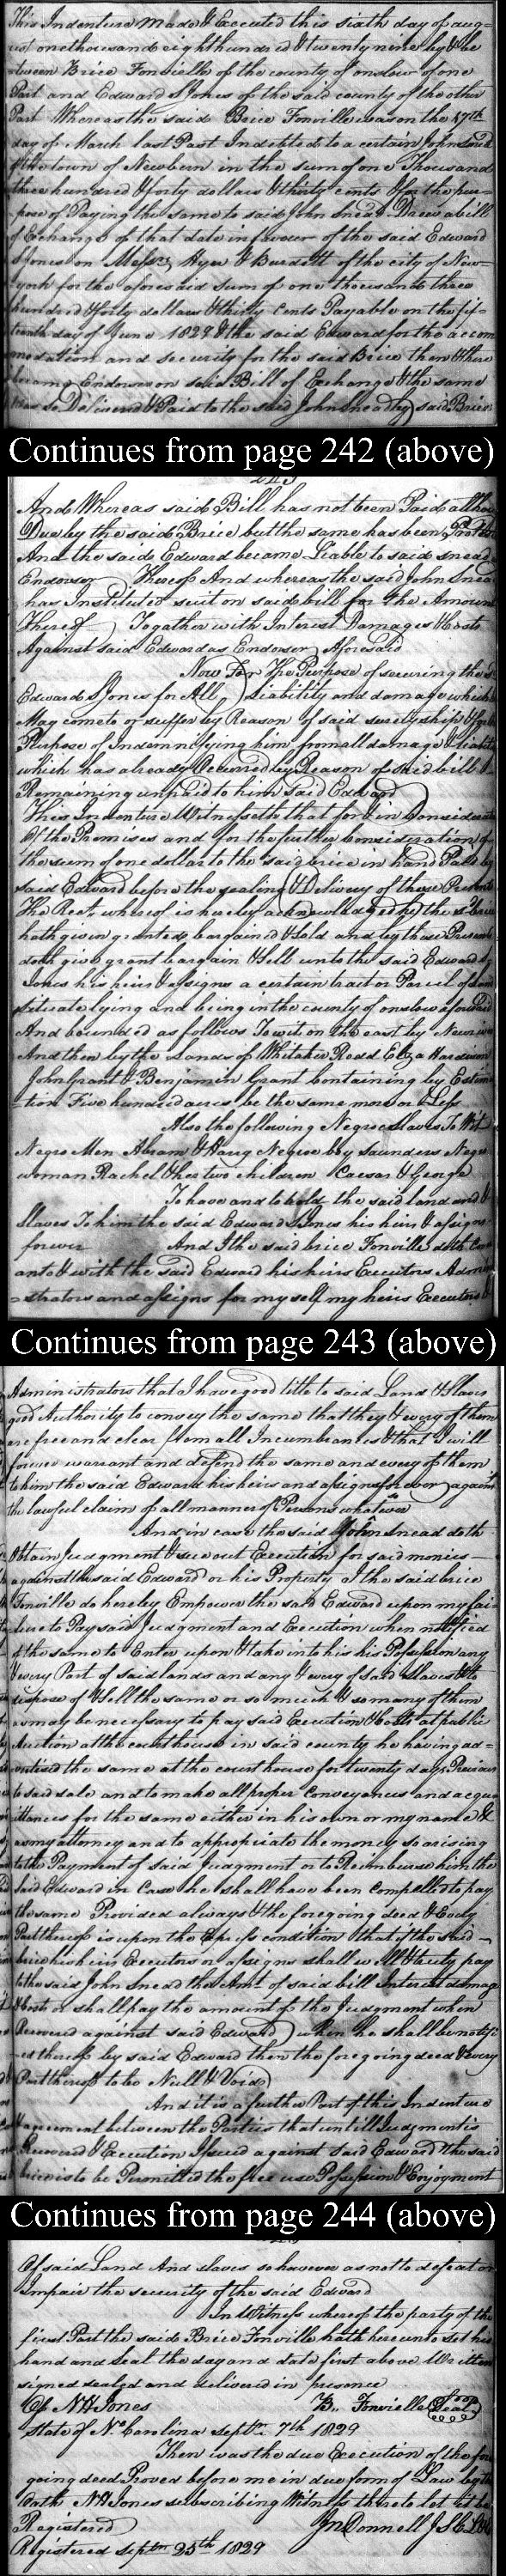 This Indenture made & Executed this sixth day of aug=
ust onethousand eighthundred & twenty nine by & be
tween Brice Fonvielle of the county of onslow of one
Part and Edward S Jones of the said county of the other
Part Whereas the said Brice Fonville was on the 17th
day of March last Past Indebted to a certain John Snead
of the town of Newbern in the sum of one Thousand
three hundred & forty dollars & thirty cents & for the pur=
pose of Paying the same to said John Snead Drew a bill
of Exchange of that date in favour of the said Edward
S Jones on Messrs Hyer & Burdett of the city of New=
york for the aforesaid sum of one thousand three
hundred & forty dollars & thirty Cents Payable on the fif=
teenth day of June 1829 & the said Edward for the accom
modation and security for the said Brice then & there
became Endorser on said Bill of Exchange & the same
was so Delivered & Paid to the said John Snead by said Brice
Continues from page 242 (above)
243
And Whereas said Bill has not been Paid altho
Due by the said Brice but the same has been
And the said Edward became Liable to said Snead
Endorser Thereof And whereas the said John Snead
has Instituted suit on said bill for the Amount
Thereof Together with Interest Damages & Costs
Against said Edward as Endorser Aforesaid
Now For The Purpose of securing the sd
Edward S Jones for All Liability and damage which
May come to or suffer by Reason of said suretyship & for the
Purpose of Indemnifying him from all damage & liability
which has already Occurred by Reason of said bill
Remaining unpaid to him said Edward
This Indenture Witnesseth that for & in Consideration
Of the Premises and for the further Consideration of
the sum of one dollar to the said brice in hand Paid by
said Edward before the sealing & Delivery of these Presents
The Rect. whereof is hereby acknowledged he the sd brice
hath given granted bargained & Sold and by these Presents
doth give grant bargain & Sell unto the said Edward S
Jones his heirs & assigns a certain tract or Parcel of Land
situate lying and being in the county of onslow aforesaid
And bounded as follows To wit on the east by New river
And then by the Lands of Whitaker Redd Eliza Hardison
John Grant & Benjamin Grant Containing by Estima
=tion Five hundred acres be the same more or Less
Also the following Negro slaves To Wit
Negro Men Abram & Harry Negro boy Saunders Negro
woman Rachel & her two children Caesar & George
To have and to hold the said land and
slaves To him the said Edward S Jones his heirs & assigns
forever And I the said brice Fonville doth
unto & with the said Edward his heirs Executors Admini
=strators and assigns for myself my heirs Executors &
Continues from page 243 (above)
Administrators that I have good title to said Land & Slaves
good Authority to convey the same that they & every of them
are free and clear from all Incumbrances & that I will
forever warrant and defend the same and every of them
to him the said Edward his heirs and assigns forever against
the lawful claim of all manner of Persons whatever
And in case the said John Snead doth
Obtain Judgment & sue out Execution for said monies
against the said Edward or his Property I the said brice
Fonville do hereby Empower the said Edward upon my fai=
lure to Pay said Judgment and Execution when notified
of the same to Enter upon & take into his his Possession any
& every Part of said lands and any & every of said slaves & to
dispose of & Sell the same or so much & so many of them
as may be necessary to pay said Execution & Costs at public
Auction at the courthouse in said county he having ad=
vertised the same at the court house for twenty days Previous
to said sale and to make all proper Conveyances and acqu
ittances for the same either in his own or my name &
as my attorney and to appropriate the money so arising
to the Payment of said Judgment or to Reimburse him the
Said Edward in Case he shall have been Compelled to pay
the same Provided always & the foregoing deed & Every
Part thereof is upon the Express condition that if the said
brice his heirs Executors or assigns shall well & truly pay
to the said John Snead the Amt. of said bill Interest damage
& Costs or shall pay the amount of the Judgment when
Recovered against said Edward when he shall be notifi
ed thereof by said Edward then the foregoing deed & every
Part thereof to be Null & Void
And it is a further Part of this Indenture
& agreement between the Parties that untill Judgment is
Recovered & Execution Issued against said Edward the said
brice is to be Permitted the free use Possession & Enjoyment
Continues from page 244 (above)
Of said Land And slaves so however as not to defeat or
Impair the security of the said Edward
In Witness whereof the party of the
first Part the said Brice Fonville hath hereunto set his
hand and Seal the day and date first above Written
signed sealed and delivered in presence
Of N H Jones B. Fonvielle Seal
State of No Carolina septm 7th 1829
Then was the due Execution of the fore
going deed Proved before me in due form of Law by the
Oath N H Jones subscribing Witness thereto let it be
Registered Jn Donnell J S C L & E
Registered septm 25th 1829